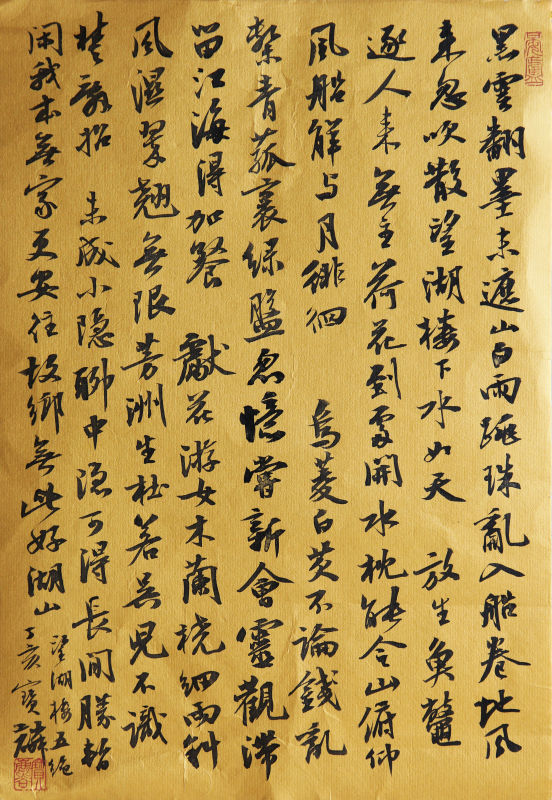 黑雲翻墨未遮山白雨跳珠亂入船卷地風
來忽吹散望湖樓下水如天 放生魚鼈
逐人來無主荷花到處開水枕能令山俯仰
風船解与月徘徊 烏菱白芡不論錢亂
繫青菰裹綠盤忽憶嘗新會靈觀滯
留江海得加餐 獻花游女木蘭橈細雨斜
風濕翠翹無限芳洲生杜若吳兒不識
楚辭招 未成小隱聊中隱可得長閒勝暫
閒我本無家更安往故鄉無此好湖山
望湖樓五絕
丁亥寶麟